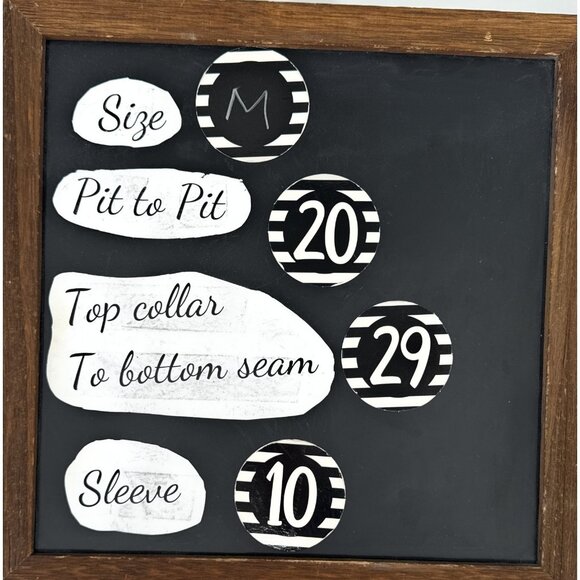 Size M
Pit to Pit 20
Top collar
To bottom seam 29
Sleeve 10